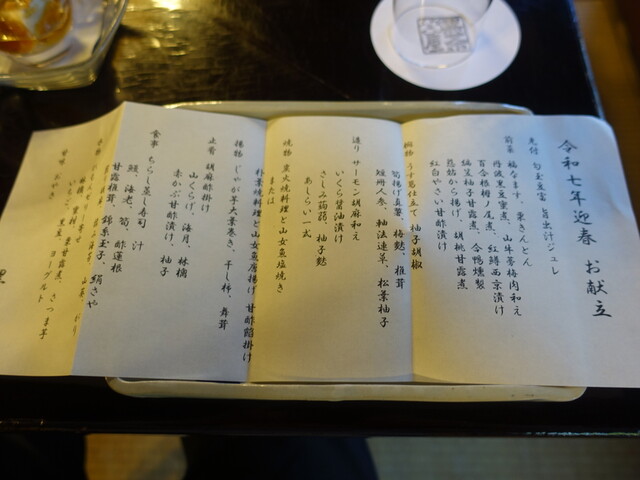 令和七年迎春 お献立
先付 勾玉豆富 旨出汁ジュレ
前菜 福なます、栗きんとん
丹波黒豆蜜煮、山牛蒡梅肉和え
百合根梅ノ尾煮、紅鱒西京漬け
編笠柚子甘露煮、合鴨燻製
慈姑から揚げ、胡桃甘露煮
紅白やさい甘酢漬け
椀物 うす葛仕立て 柚子胡椒
筍揚げ真薯、梅麩、椎茸
短冊人参、軸法連草、松葉柚子
造り サーモン胡麻和え
いくら醤油漬け
さしみ蒟蒻 柚子麩
あしらい一式
焼物 炭火焼料理と山女魚塩焼き
または
朴葉焼料理と山女魚唐揚げ甘酢餡掛け
揚物 じゃが芋大葉巻き、干し柿、舞茸
止肴 胡麻酢掛け
山くらげ、海月、林檎
赤かぶ甘酢漬け、柚子
食事 ちらし蒸し寿司 汁
鰻、海老、筍、酢蓮根
甘露椎茸、錦糸玉子、絹さや
黒豆、ヨーグルト
甘味 おやき さつま芋